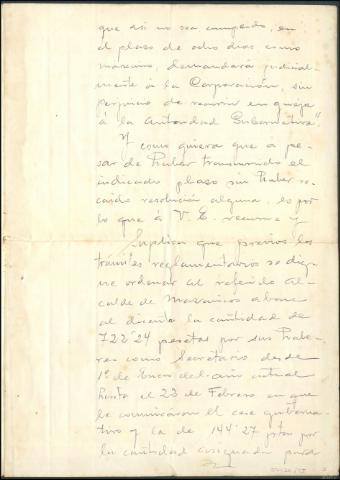 que así no sea cumplido, en
el plazo de ocho días como
máximo, demandará judicial-
mente á la Corporación, sin
perjuicio de recurrir en queja
á la Autoridad Gubernativa".
Y como quiera que a pe-
sar de haber transcurrido el
indicado plazo sin haber re-
caido resolución alguna, es por
lo que á V. E. recurre y
Suplica que previos los
trámites reglamentarios se dig-
ne ordenar al referido Al-
calde de Mazaricos abone
al dicente la cantidad de
722'24 pesetas por sus habe-
res como Secretario desde
1º de Enero del año actual
hasta el 22 de Febrero en que
le comunicáron el cese guberna-
tivo y la de 144'27 ptas por
la cantidad consignada para